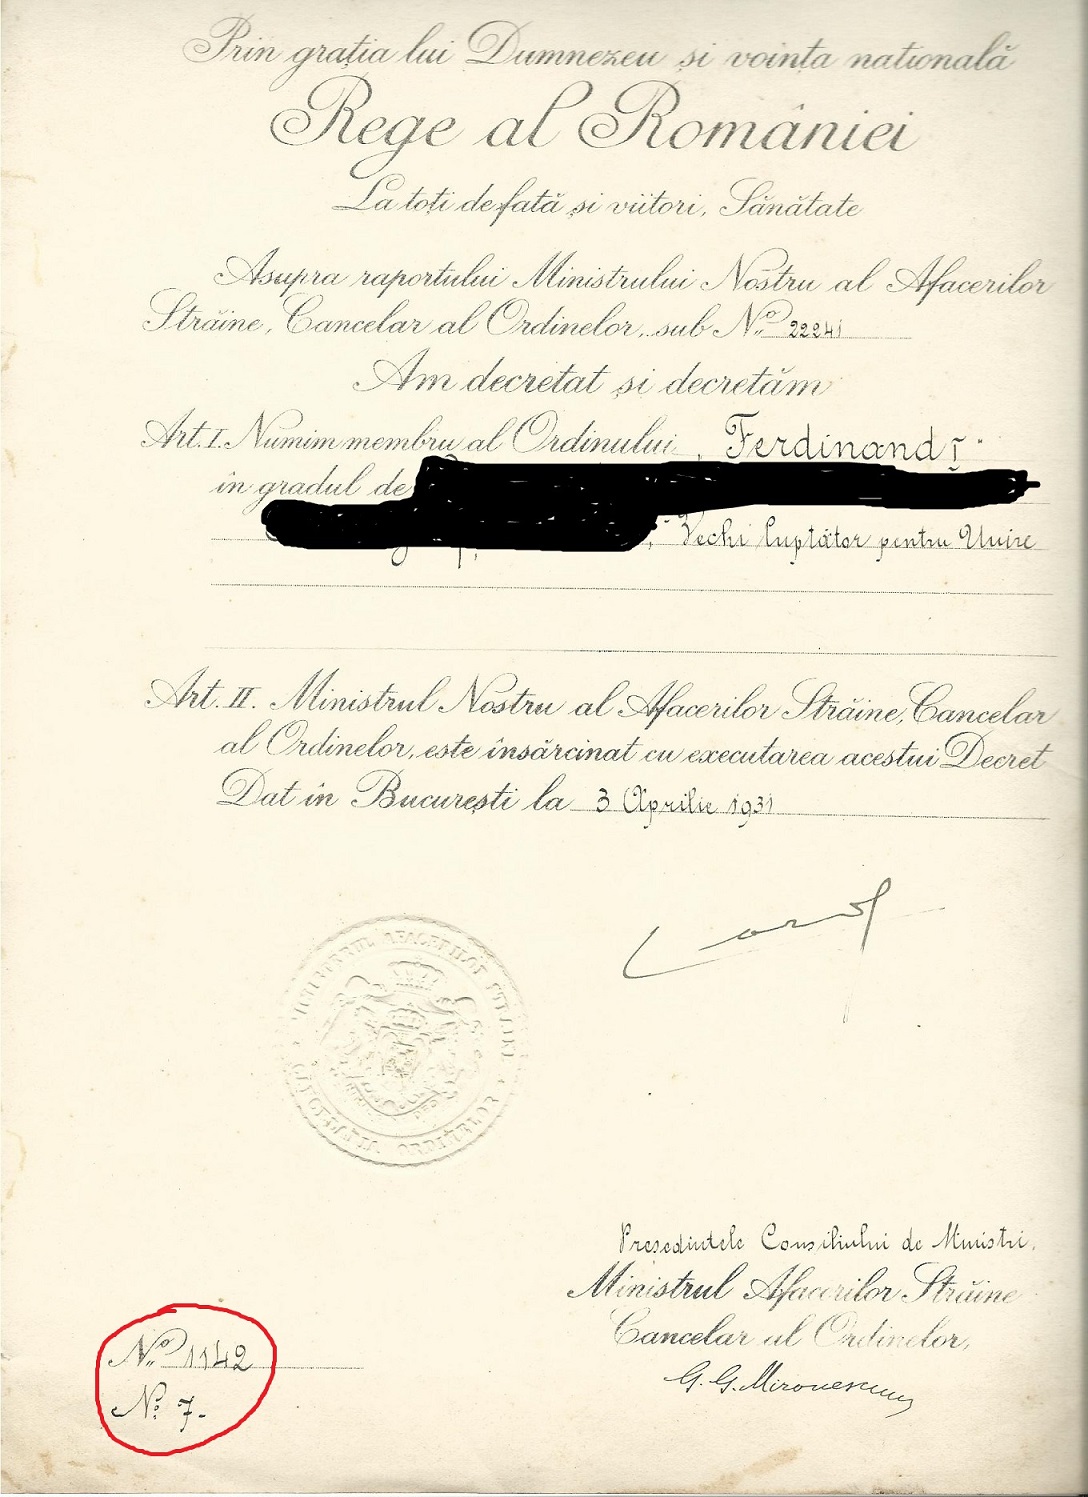 Prin grația lui Dumnezeu și voința natională
Rege al României
La toți de față și viitori, Sănătate
Asupra raportului Ministrului Nostru al Afacerilor
Străine, Cancelar al Ordinelor, sub N.º 22241
Am decretat și decretăm
Art. I. Numim membru al Ordinului „Ferdinand I"
în gradul de
„Vechi luptător pentru Unire
Art. II. Ministrul Nostru al Afacerilor Străine, Cancelar
al Ordinelor, este însărcinat cu executarea acestui Decret
Dat în București la 3 Aprilie 1931
Carol
MINISTERUL AFACERILOR STRĂINE
CANCELARIA ORDINELOR
Președintele Consiliului de Miniștri,
Ministrul Afacerilor Străine
Cancelar al Ordinelor,
G. G. Mironescu
N.º 1142
Nº 7.